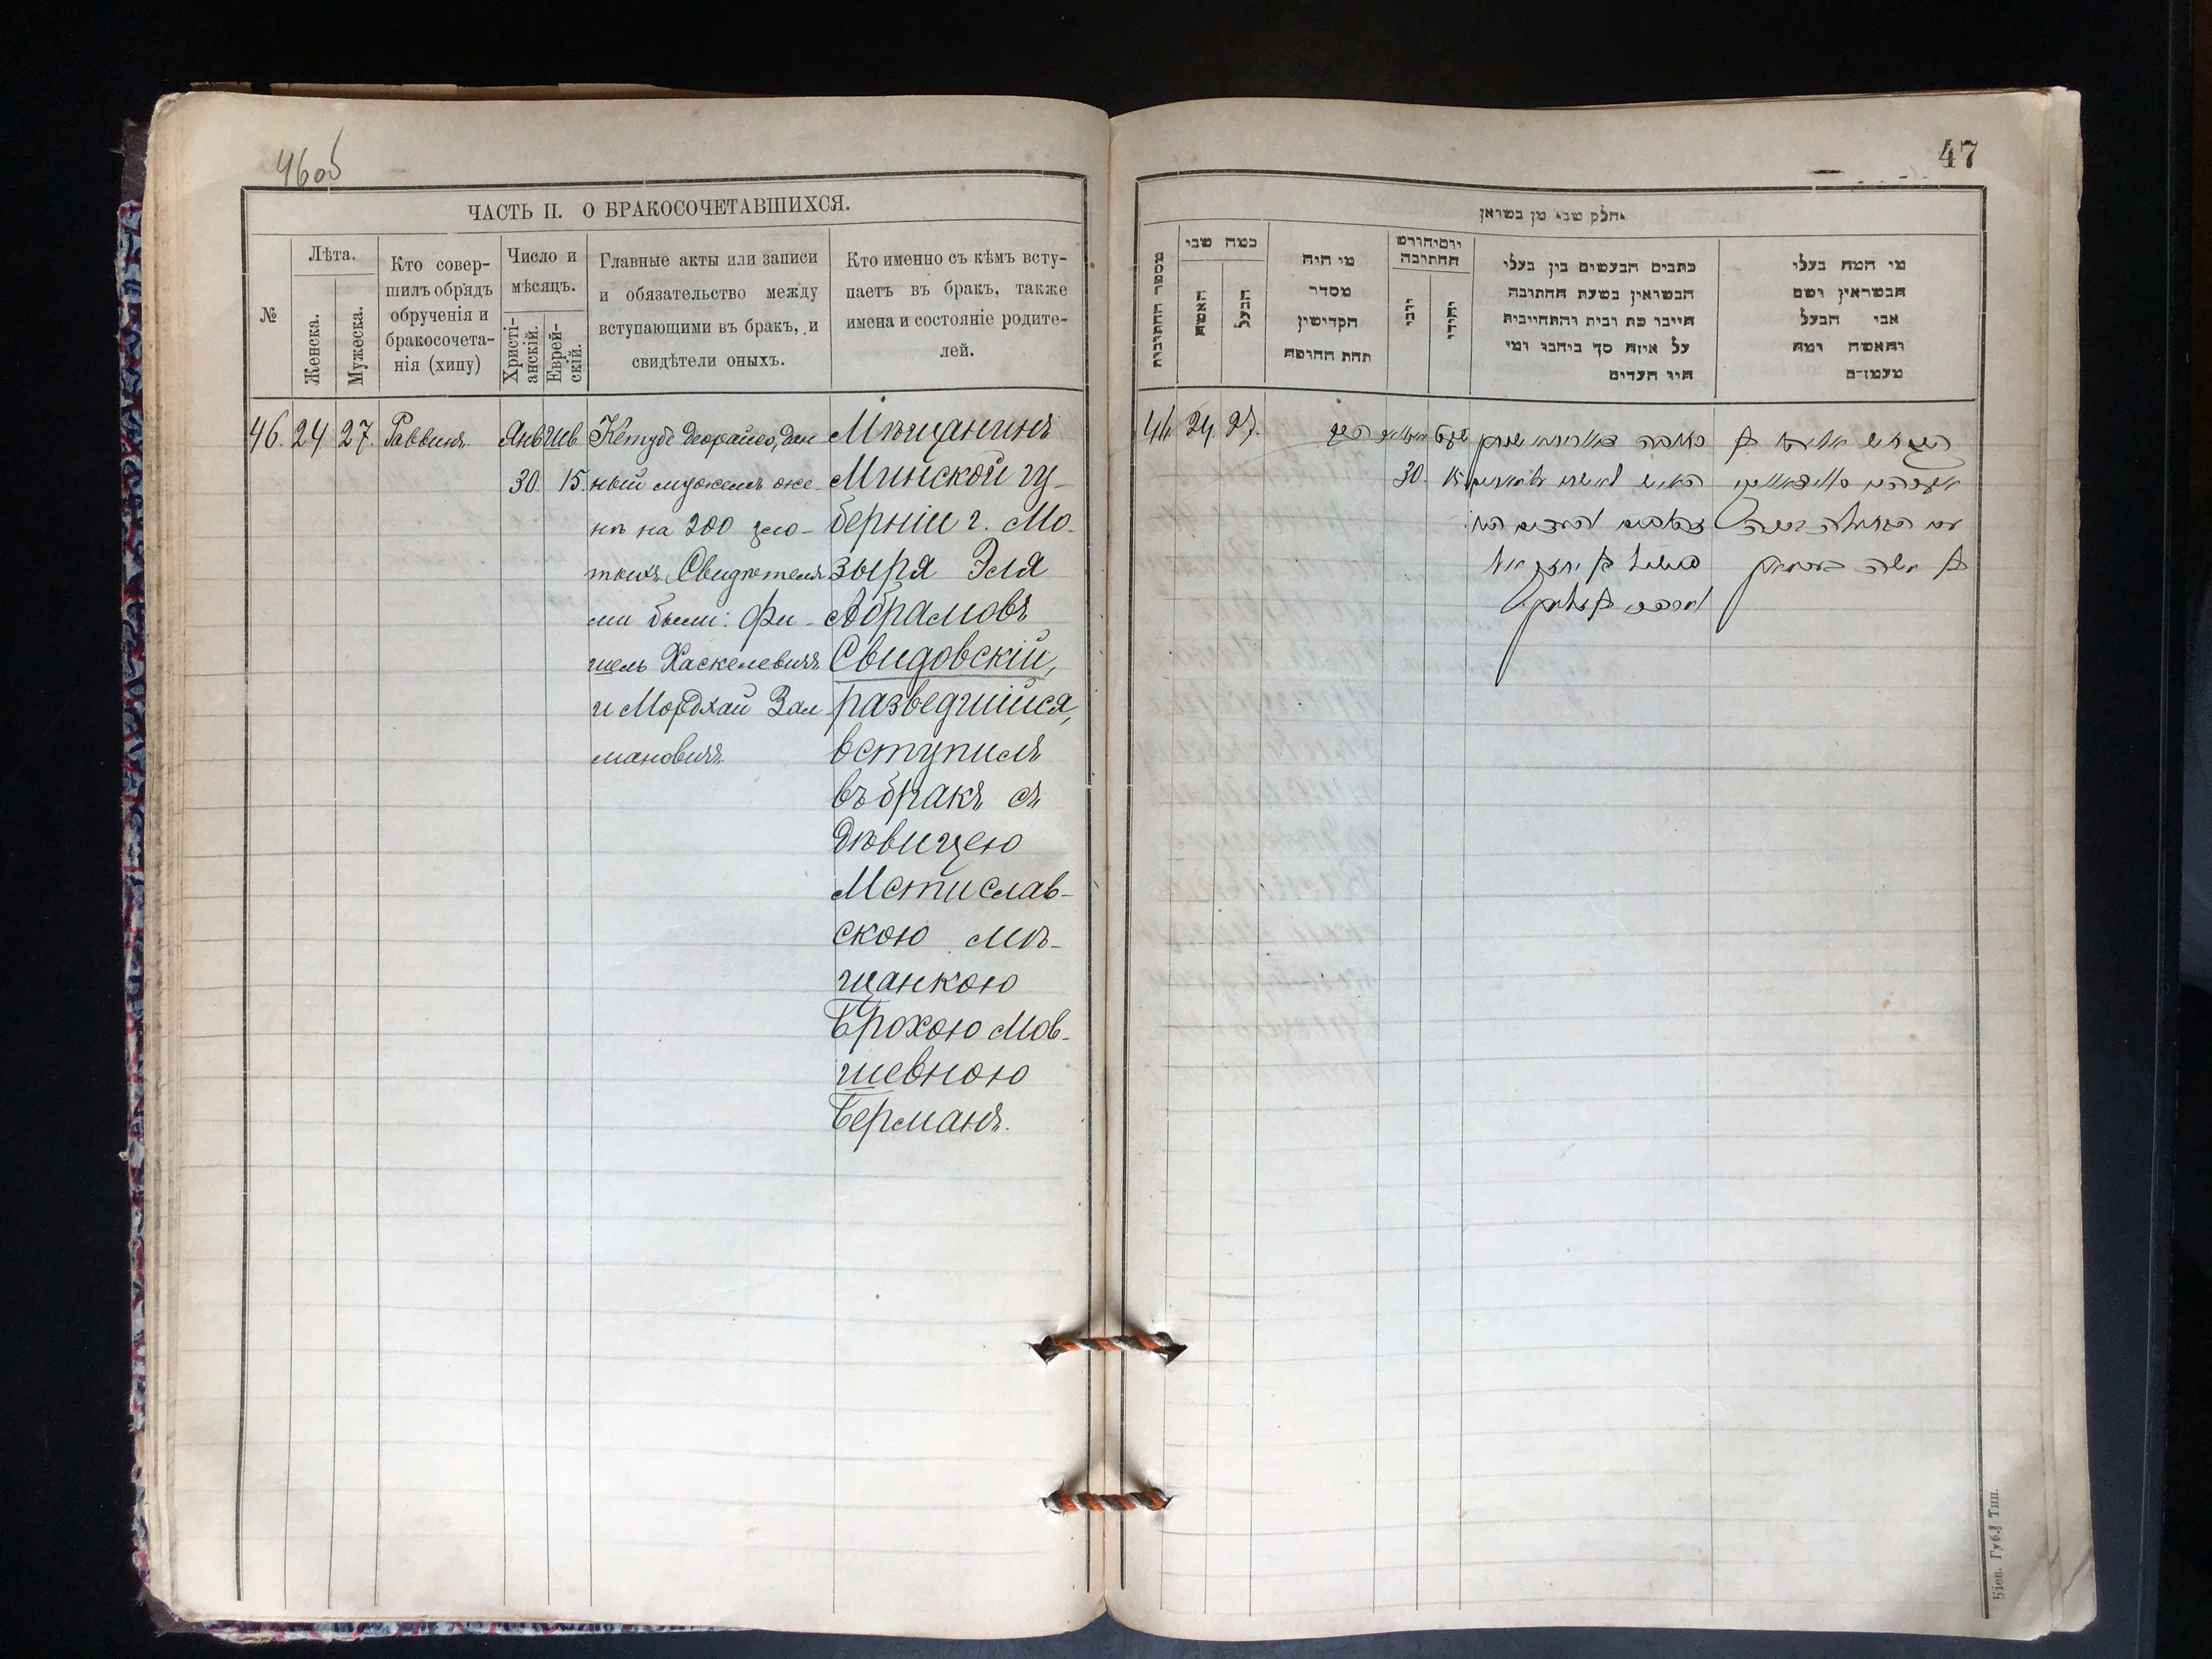 46 об
ЧАСТЬ II. О БРАКОСОЧЕТАВШИХСЯ.
№
Лѣта.
Женска.
Мужеска.
Кто совер-
шилъ обрядъ
обрученія и
бракосочета-
нія (хипу)
Число и
мѣсяцъ.
Христі-
анскій.
Еврей-
скій.
Главные акты или записи
и обязательство между
вступающими въ бракъ, и
свидѣтели оныхъ.
Кто именно съ кѣмъ всту-
паетъ въ бракъ, также
имена и состояніе родите-
лей.
46. 24 27. Раввинъ
Янв
30
Шв
15.
Кетубе деорайсо, дан
ный мужемъ же-
нѣ на 200 зло-
тыхъ. Свидѣтеля
ми были: Фи-
шель Хаскелевичъ
и Мордхай Зал
мановичъ.
Мѣщанинъ
Минской гу-
берніи г. Мо-
зыря Эля
Абрамовъ
Свидовскій,
разведшійся,
вступилъ
въ бракъ съ
дѣвицею
Мстислав-
скою мѣ-
щанкою
Брохою Мов-
шевною
Берманъ.
47
חלק שני מן נשואין
מספר החתונות
כמה שני
האשה
הבעל
מי היה
מסדר
הקדישין
תחת החופה
יום וחודש
החתונה
נוצרי
יהודי
כתבים הנעשים בין בעלי
הנשואין בשעת החתונה
היינו כת ובית והתחייבית
על איזה סך ביניהם ומי
היו העדים
מי המה בעלי
הנשואין ושם
אבי הבעל
והאשה ומה
מעמדם
46. 24. 27.
הרב
30.
שבט
15
כתובה
האיש לאשתו
פישל בן
בן
אברהם
עם הבתולה ברכה
בן משה בערמאן
Кіев. Губ. Тип.